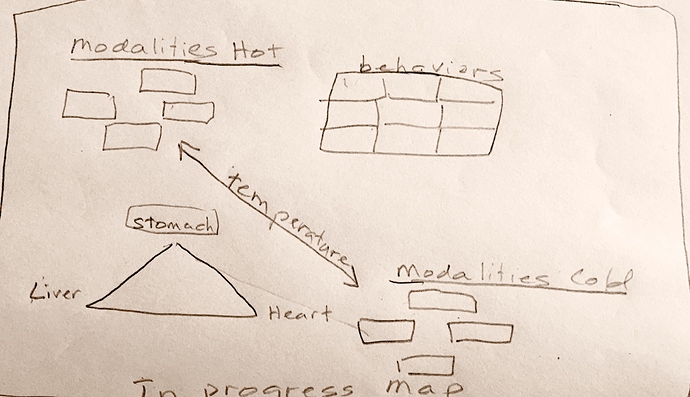 modalities Hot
behaviors
temperature
stomach
Liver
Heart
Modalities Cold
In progress map